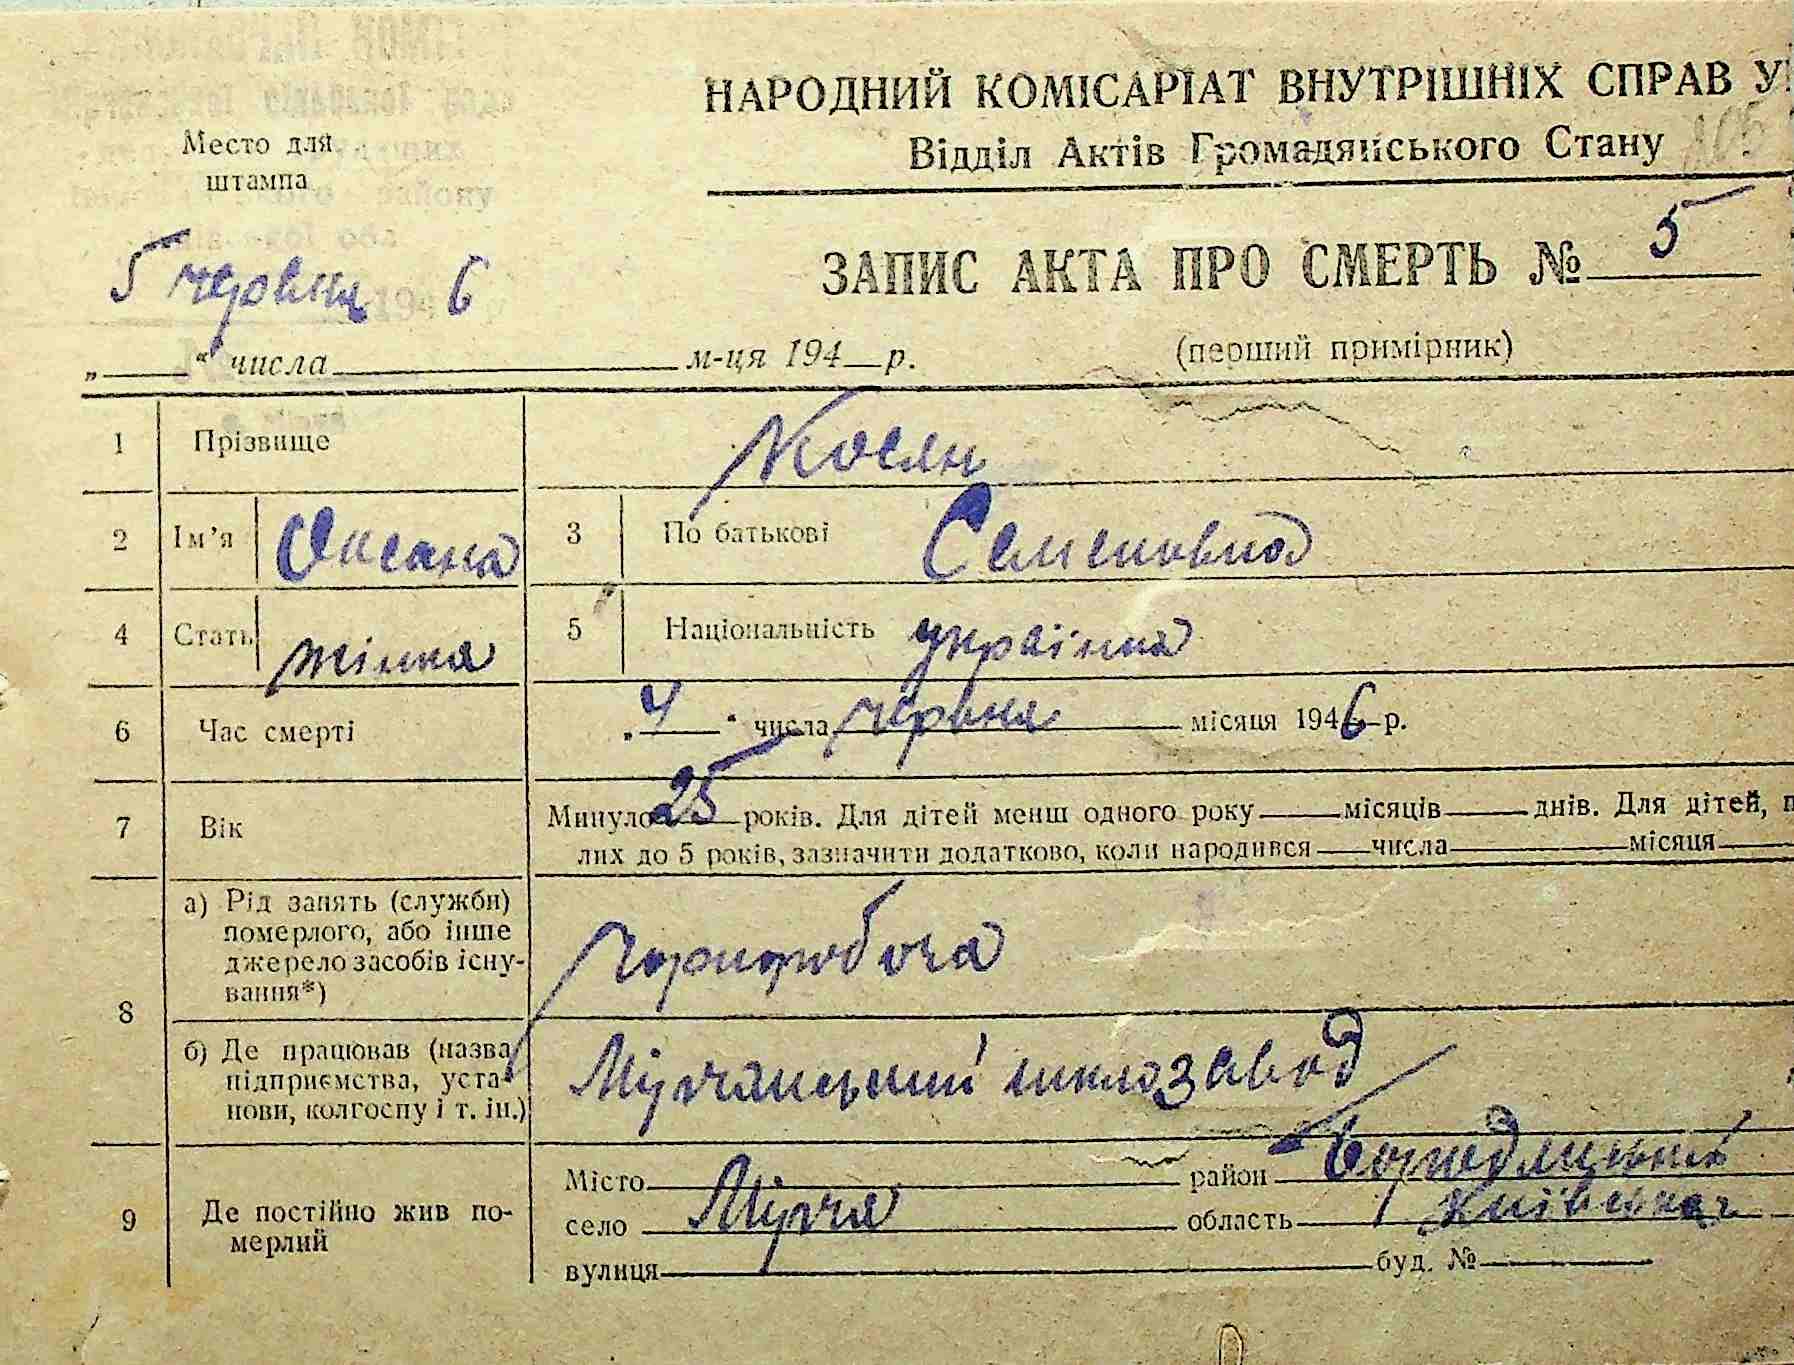 НАРОДНИЙ КОМІСАРІАТ ВНУТРІШНІХ СПРАВ У
Відділ Актів Громадянського Стану
Место для
штампа
5 червня 194 6
ЗАПИС АКТА ПРО СМЕРТЬ № 5
„ “ числа м-ця 194 р.
(перший примірник)
1 Прізвище Косян
2 Ім’я Оксана 3 По батькові Семеновна
4 Стать жінка 5 Національність українка
6 Час смерті „4“ числа червня місяця 1946 р.
7 Вік Минуло 25 років. Для дітей менш одного року місяців днів. Для дітей, п
лих до 5 років, зазначити додатково, коли народився числа місяця
8 а) Рід занять (служби)
померлого, або інше
джерело засобів існу-
вання*)
чорноробоча
б) Де працював (назва
підприємства, уста-
нови, колгоспу і т. ін.)
Мірчанський шклозавод
9 Де постійно жив по-
мерлий
Місто район Бородянський
село Мірча область Київська
вулиця буд. №